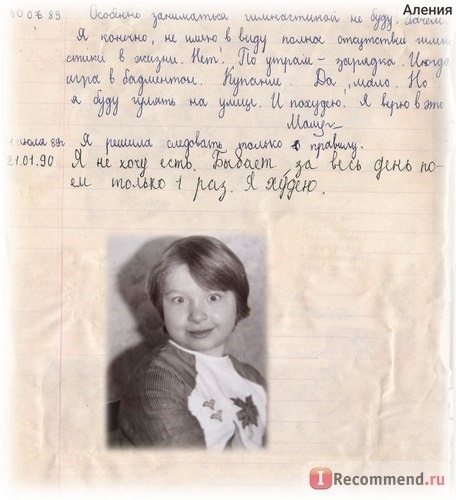 Аления
30.06.89. Особенно заниматься гимнастикой не буду. Зачем?
Я конечно, не имею в виду полное отсутствие гимна-
стики в жизни. Нет! По утрам - зарядка. Иногда
игра в бадментон. Купание. Да, мало. Но
я буду гулять на улице. И похудею. Я верю в это
июля 89г. Я решила следовать только правилу.
21.01.90 Я не хочу есть. Бывает, за весь день по-
ем только 1 раз. Я худею.
IRecommend.ru